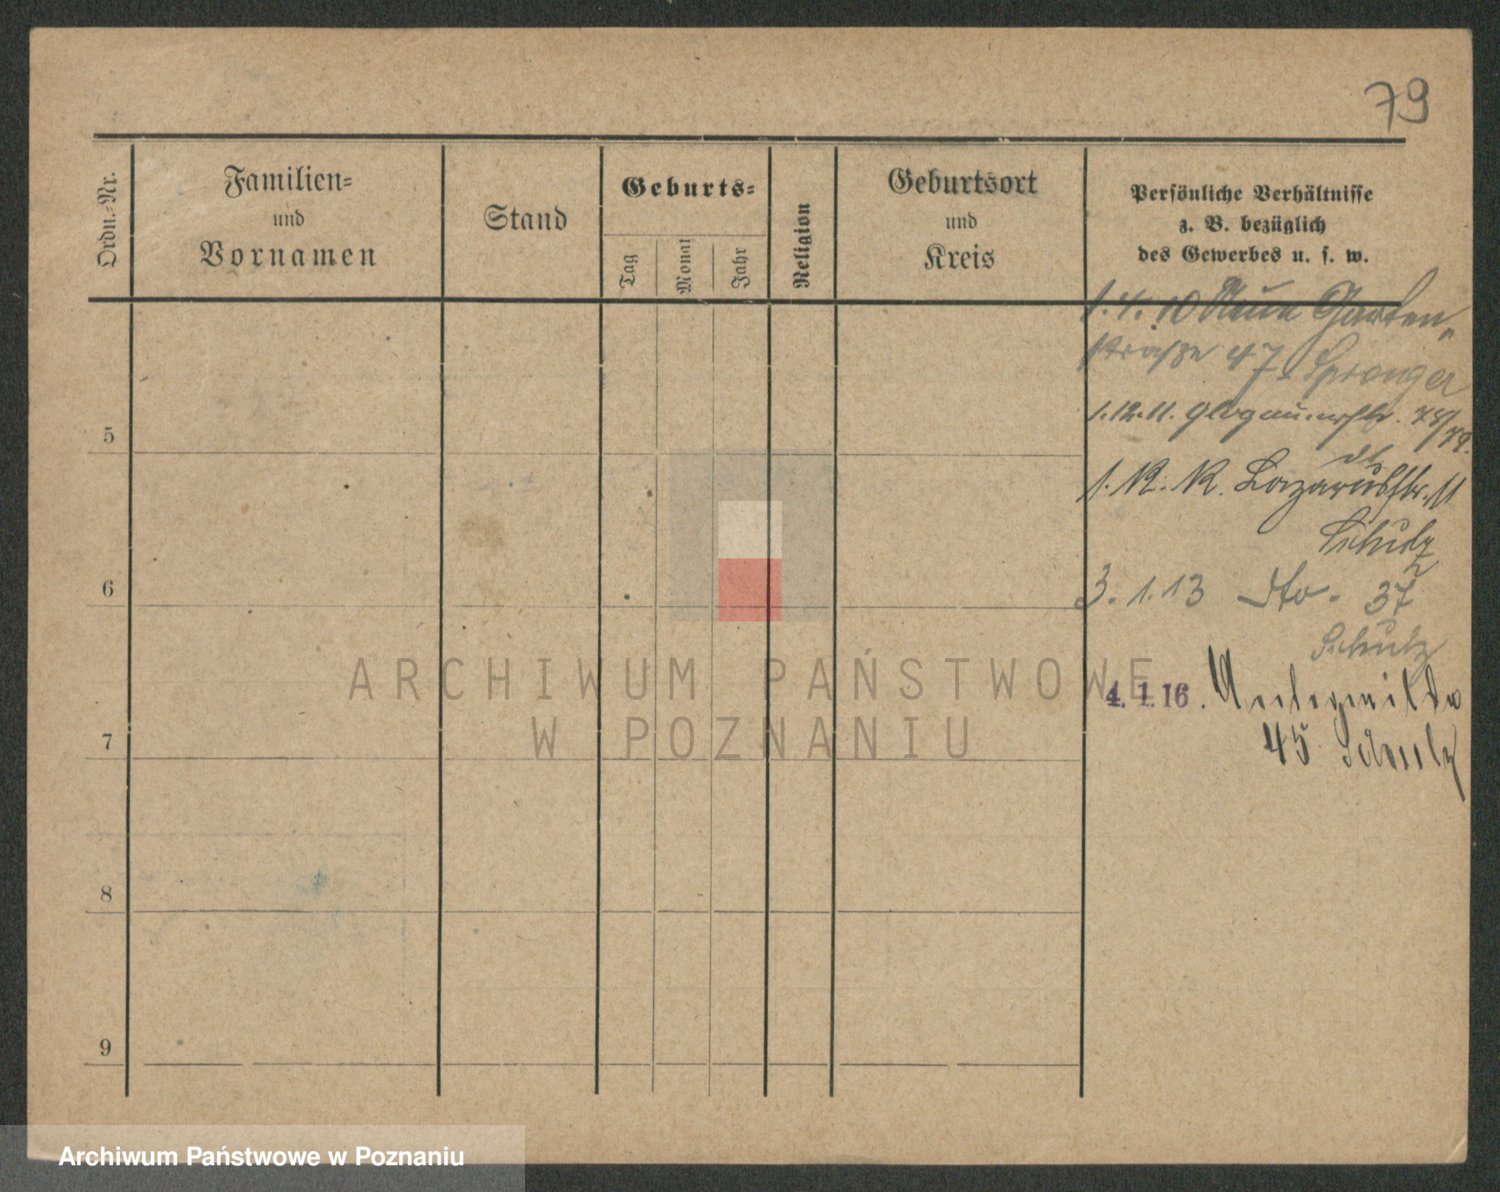 79
Ordn.-Nr.
Familien-
und
Vornamen
Stand
Geburts-
Tag
Monat
Jahr
Religion
Geburtsort
und
Kreis
Persönliche Verhältnisse
z. B. bezüglich
des Gewerbes u. s. w.
1. 4. 10 Neue Garten-
straße 47 Spranger
1.12.11. Glogauerstr. 78/79.
Lazarusstr. 11
Schulz
3. 1. 13 dto. 37
Schulz
4. 1. 16. Unterwilda
45 Schulz
5
6
7
8
9
ARCHIWUM PAŃSTWOWE
W POZNANIU
Archiwum Państwowe w Poznaniu